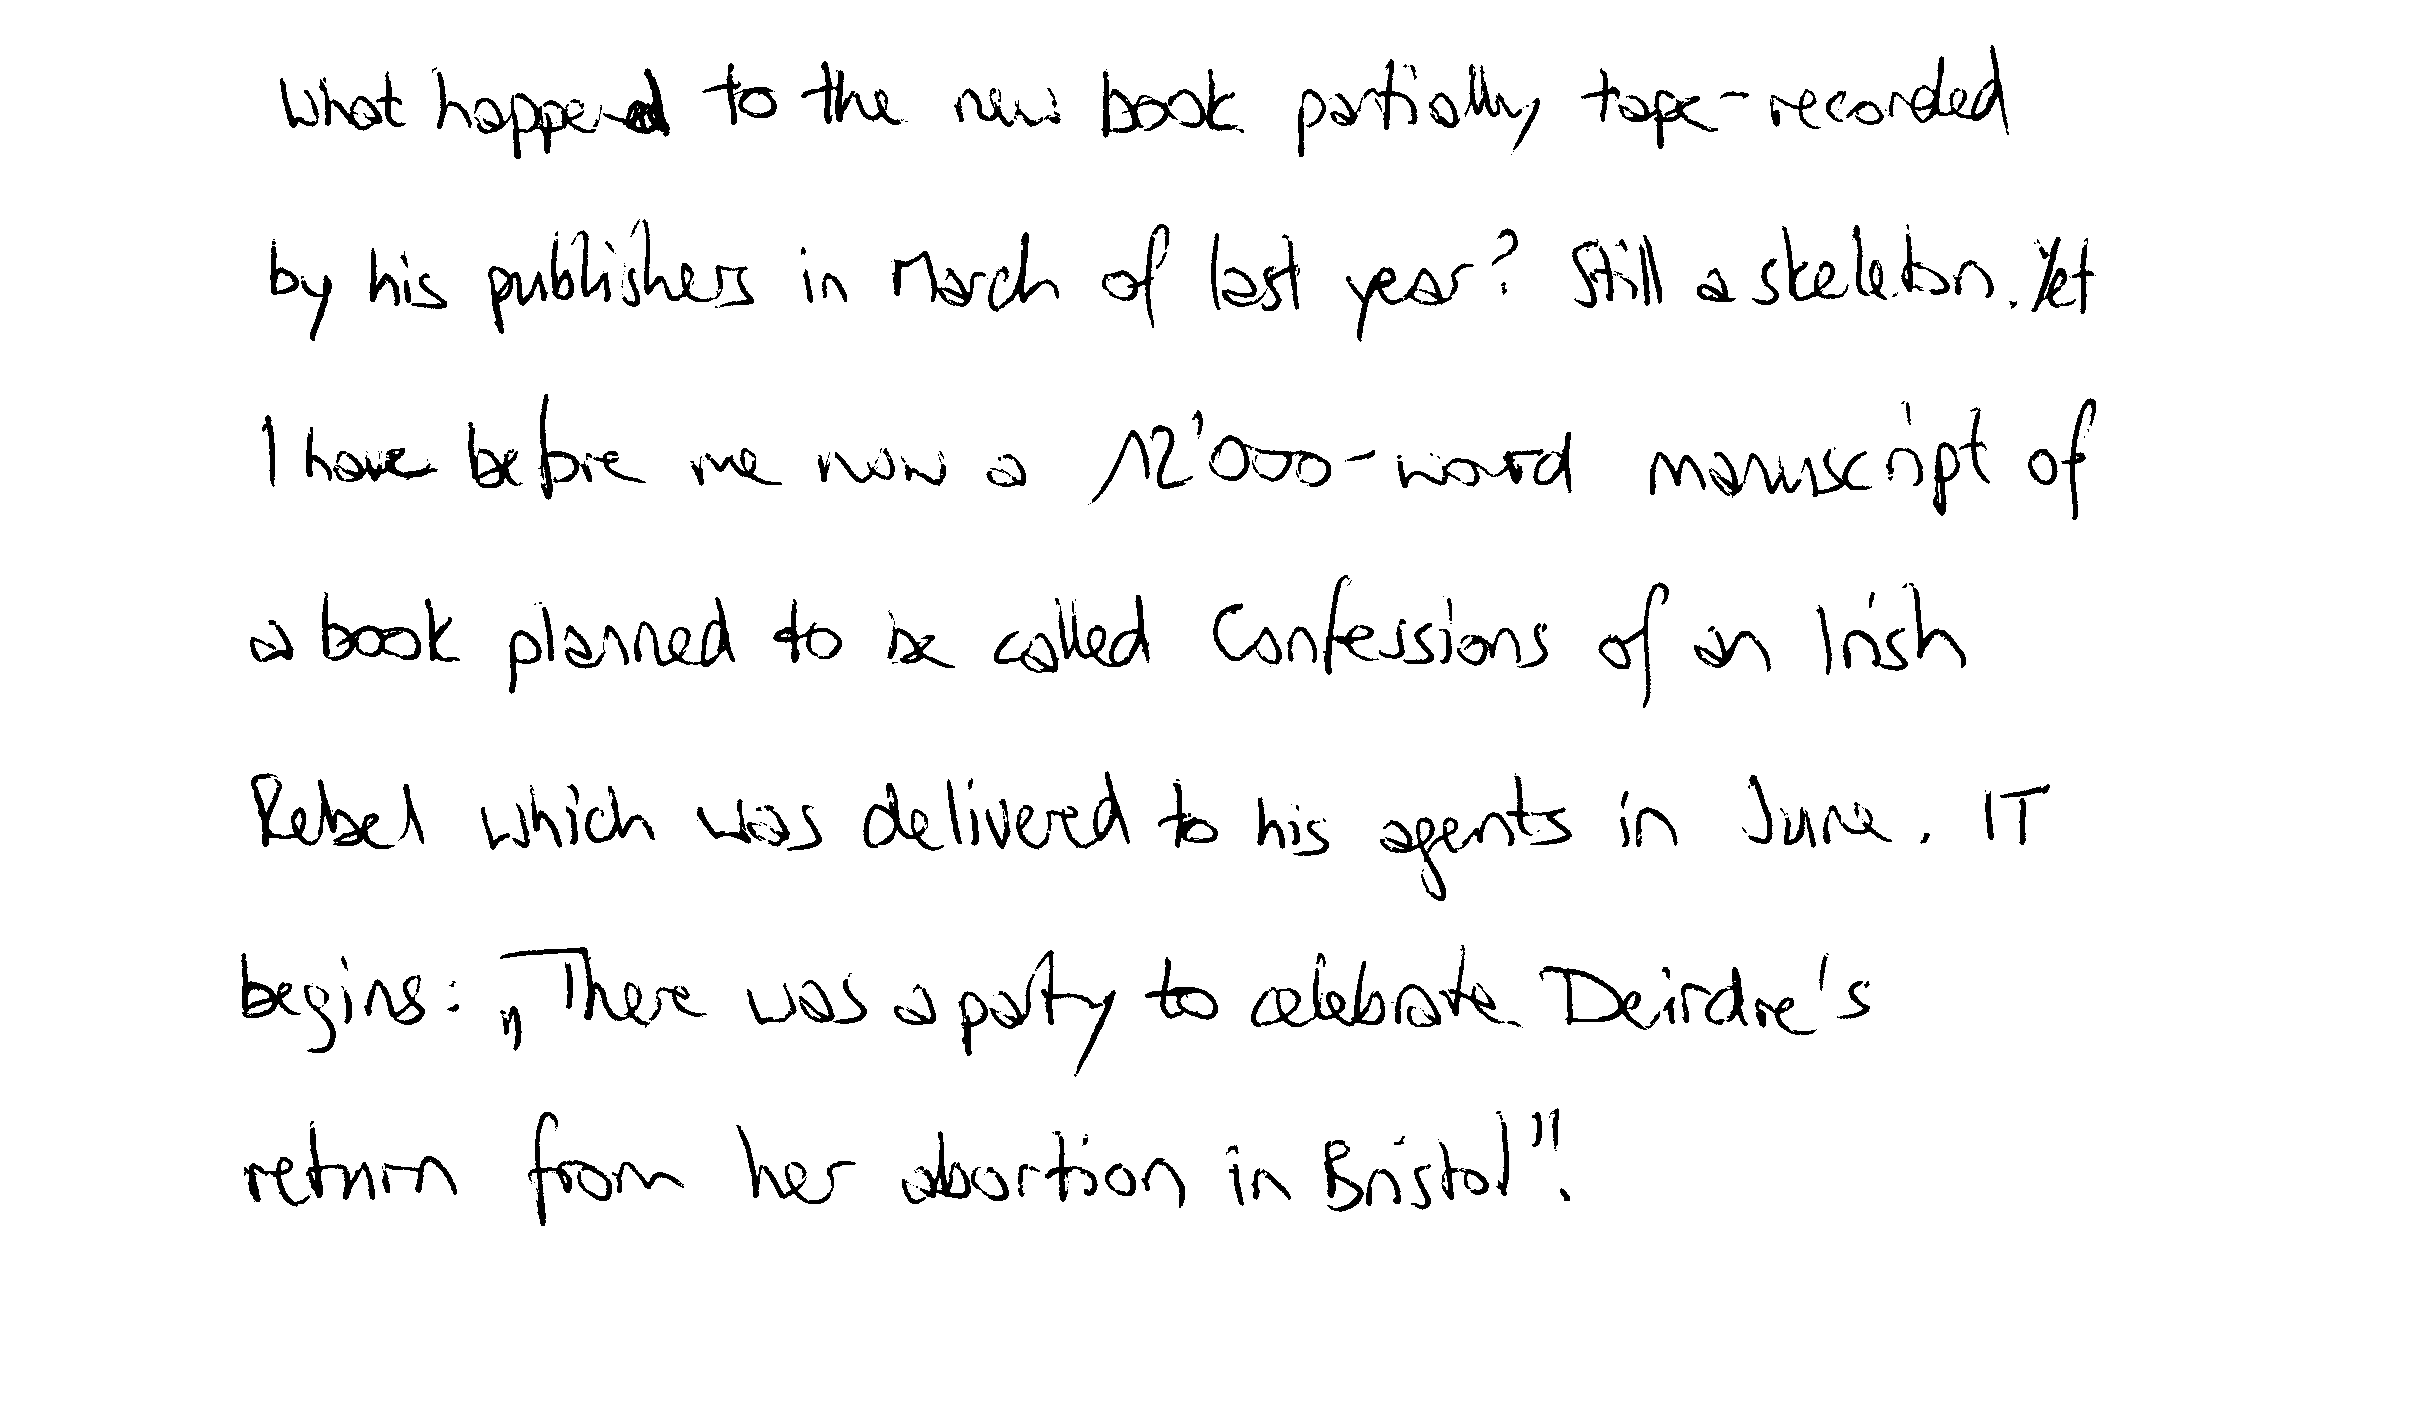 What happened to the new book partially tape-recorded
by his publishers in March of last year? Still a skeleton. Yet
I have before me now a 12'000-word manuscript of
a book planned to be called Confessions of an Irish
Rebel which was delivered to his agents in June. IT
begins: „There was a party to celebrate Deirdre's
return from her abortion in Bristol".